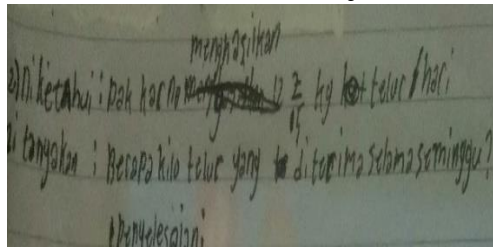 menghasilkan
2) Diketahui : pak harno 12 2/15 kg telur / hari
Ditanyakan : Berapa kilo telur yang diterima selama seminggu?
penyelesaian :